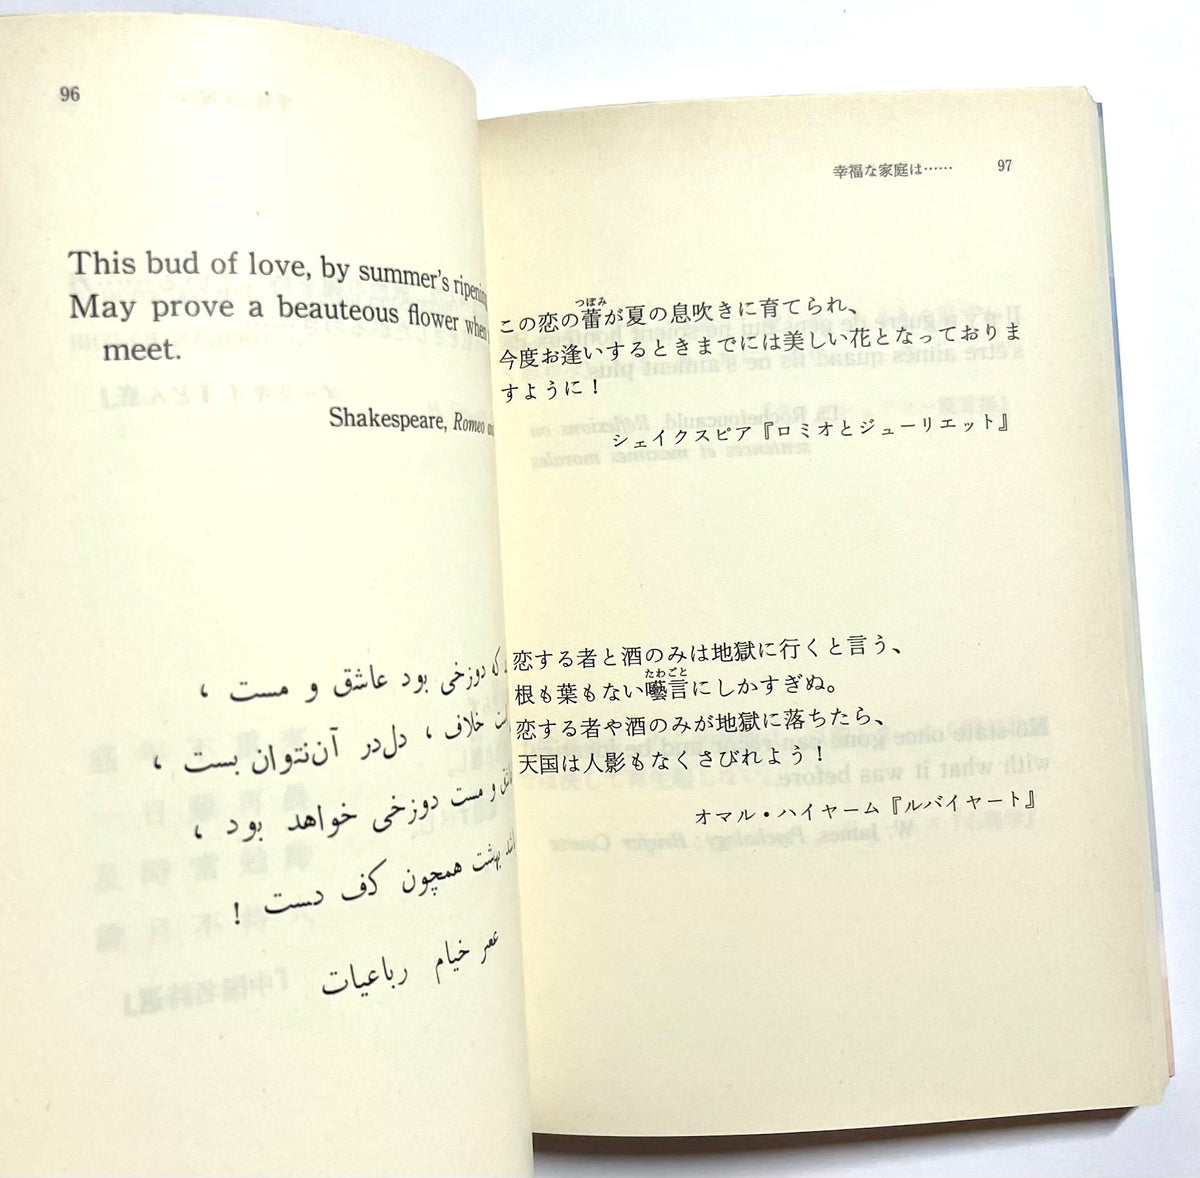 96
This bud of love, by summer's ripening
May prove a beauteous flower when
meet.
Shakespeare, Romeo
که دوزخی بود عاشق و مست ،
خلاف ، دل‌در آن‌نتوان بست ،
و مست دوزخی خواهد بود ،
بهشت همچون کف دست !
خیام رباعیات
幸福な家庭は…… 97
この恋の蕾が夏の息吹きに育てられ、
つぼみ
今度お逢いするときまでには美しい花となっておりま
すように！
シェイクスピア『ロミオとジューリエット』
恋する者と酒のみは地獄に行くと言う、
根も葉もない囈言にしかすぎぬ。
たわごと
恋する者や酒のみが地獄に落ちたら、
天国は人影もなくさびれよう！
オマル・ハイヤーム『ルバイヤート』